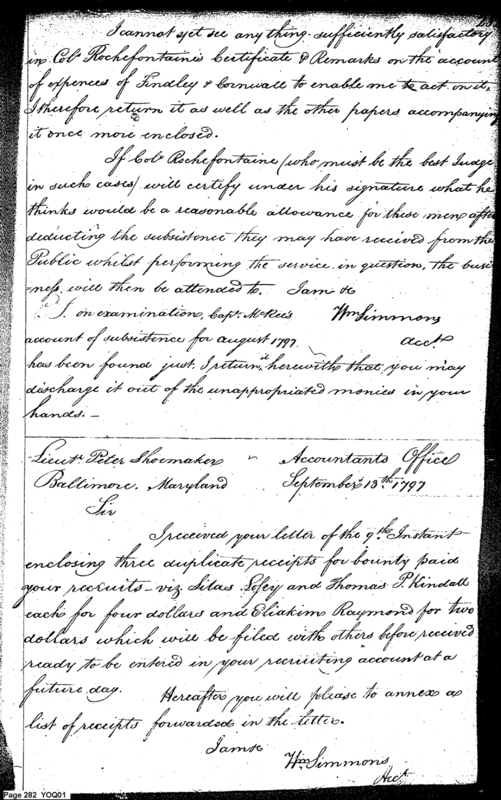 I cannot yet see any thing sufficiently satisfactory
in Colo Rochefontaine's Certificate & Remarks on the account
of expences of Findley & Cornwall to enable me to act on it,
I therefore return it as well as the other papers accompanying
it once more enclosed.
If Colo Rochefontaine (who must be the best Judge
in such cases) will certify under his signature what he
thinks would be a reasonable allowance for these men after
deducting the subsistence they may have received from the
Public whilst performing the service in question, the busi-
-ness will then be attended to. I am &
P.S. on examination, Capt. McKee's Wm Simmons
account of subsistence for august 1797 Acct
has been found just, I return it herewith that you may
discharge it out of the unappropriated monies in your
hands.—
Lieut. Peter Shoemaker Accountants Office
Baltimore, Maryland September 13th 1797
Sir
I received your letter of the 9th Instant
enclosing three duplicate receipts for bounty paid
your recruits – viz Silas Lofey and Thomas P. Kindall
each for four dollars and Eliakim Raymond for two
dollars which will be filed with others before received
ready to be entered in your recruiting account at a
future day. Hereafter you will please to annex a
list of receipts forwarded in the letter.
I am &
Wm Simmons
Acct
Page 282 YOQ01